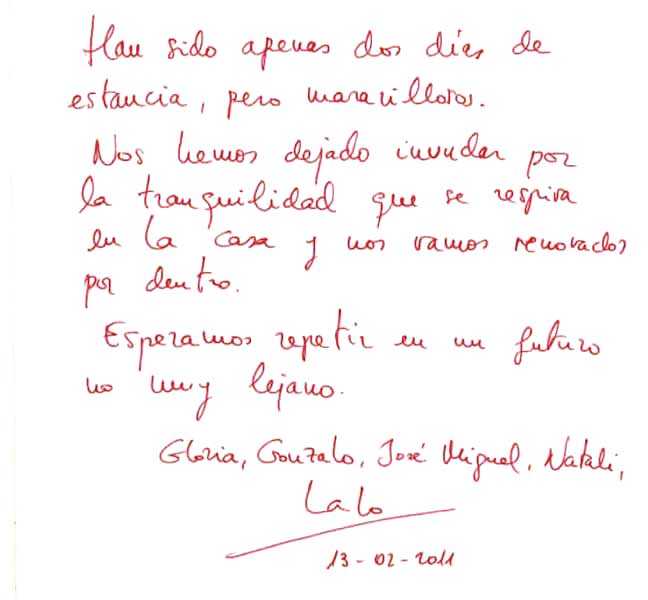 Han sido apenas dos días de
estancia, pero maravillosos.
Nos hemos dejado inundar por
la tranquilidad que se respira
en la casa y nos vamos renovados
por dentro.
Esperamos repetir en un futuro
no muy lejano.
Gloria, Gonzalo, José Miguel, Natali,
Lalo
13-02-2011